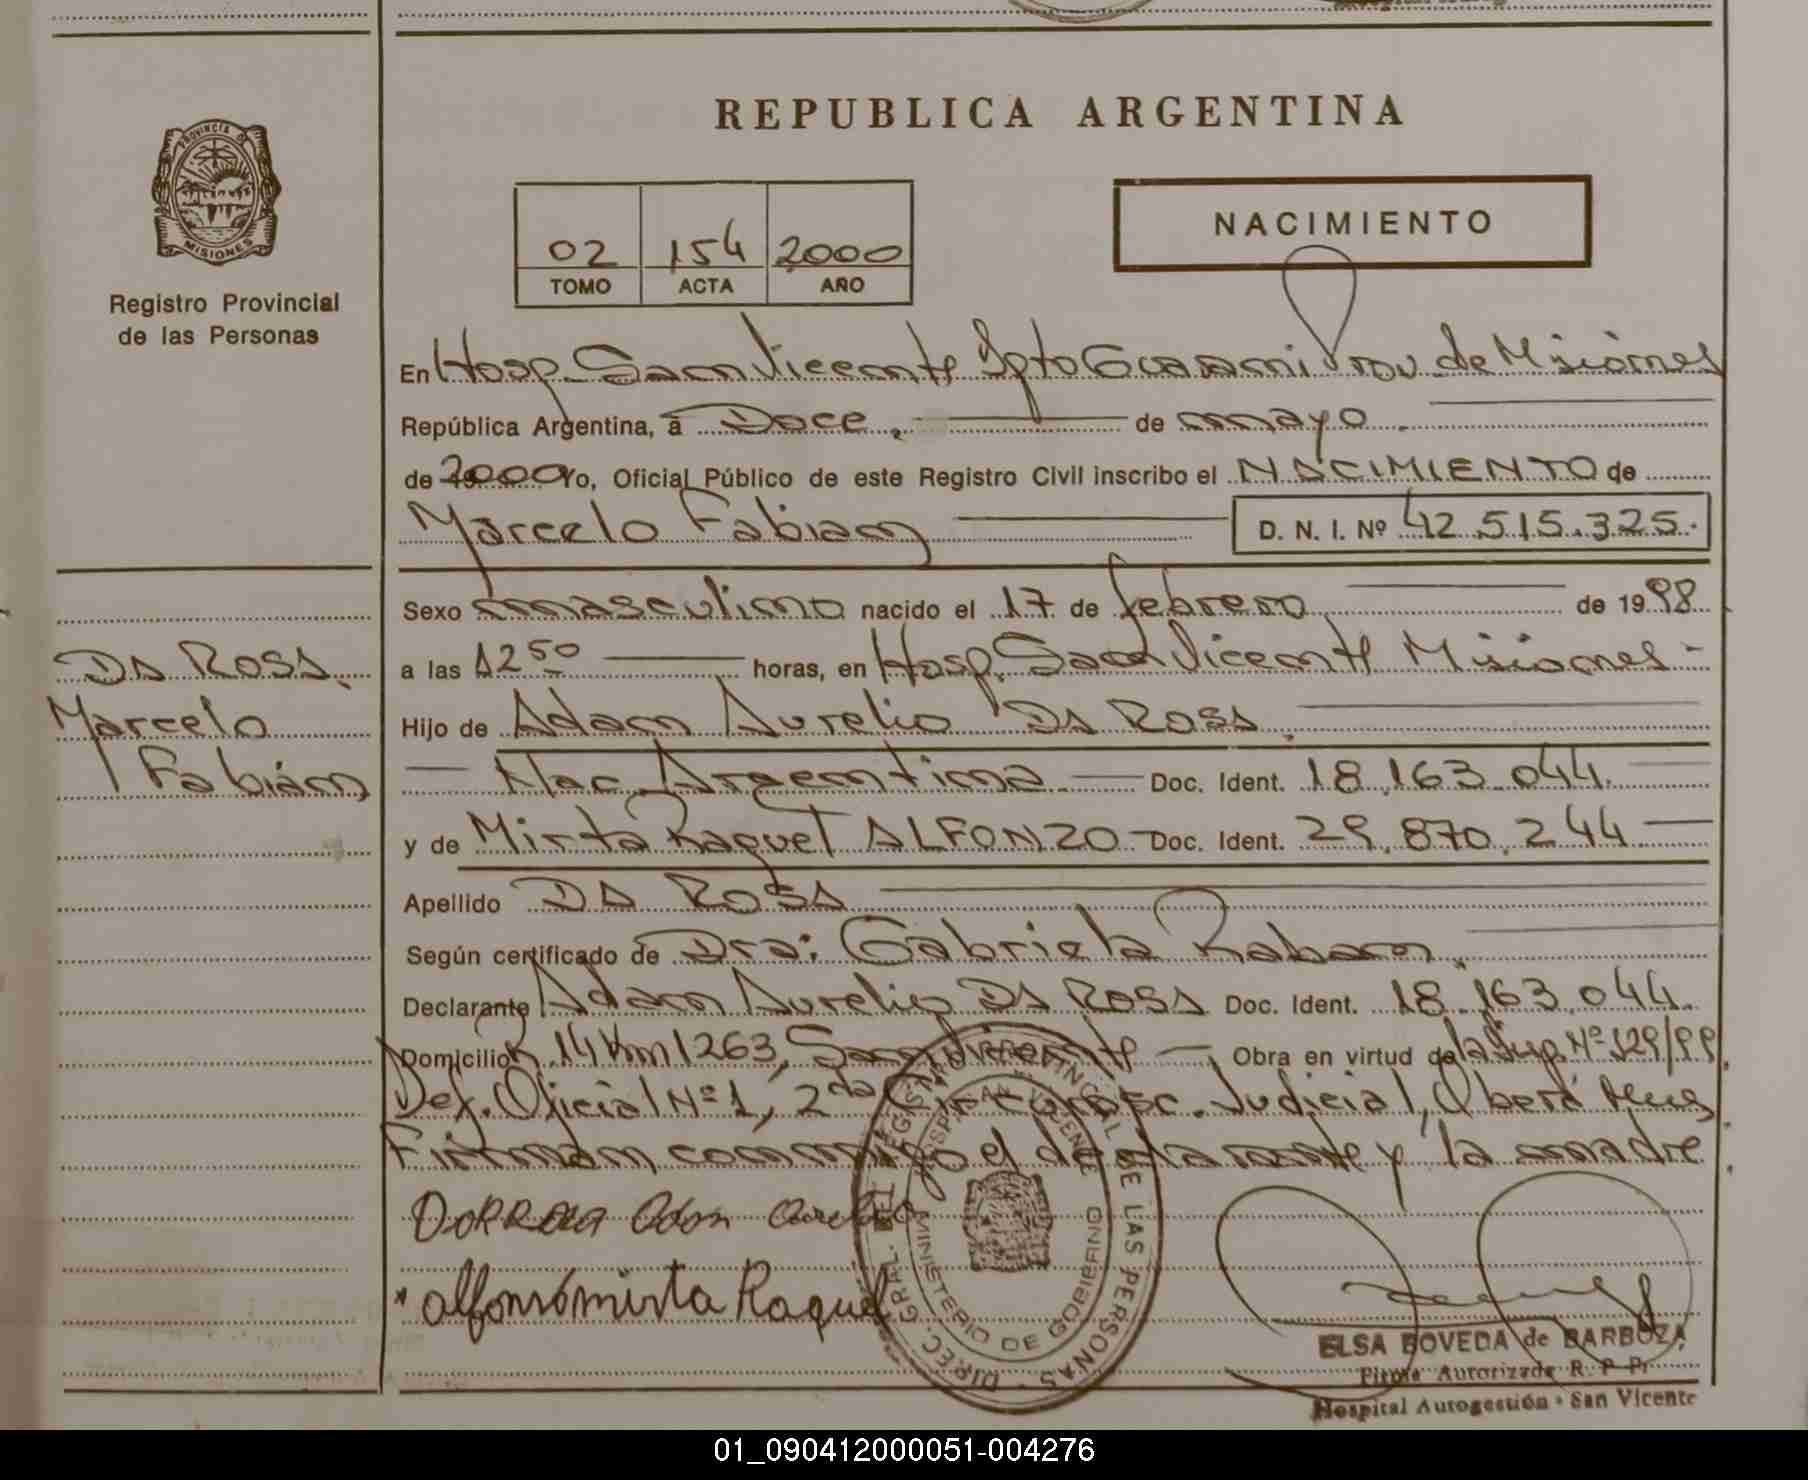 REPUBLICA ARGENTINA
PROVINCIA DE
MISIONES
Registro Provincial
de las Personas
02 154 2000
TOMO ACTA AÑO
NACIMIENTO
En Hosp. San Vicente Dpto Guarani Prov. de Misiones
República Argentina, a Doce. de mayo.
de 2000 Yo, Oficial Público de este Registro Civil inscribo el NACIMIENTO de
Marcelo Fabian D. N. I. Nº 42.515.325.
Sexo masculino nacido el 17 de febrero de 1998
a las 12 50 horas, en Hosp. San Vicente Misiones -
Hijo de Adam Aurelio DA ROSA.
Nac. Argentina. Doc. Ident. 18.163.044.
y de Mirta Raquel ALFONZO - Doc. Ident. 29.870.244
Apellido DA ROSA
Según certificado de Dra: Gabriela Raban.
Declarante Adam Aurelio DA ROSA Doc. Ident. 18.163.044.
Domicilio R. 14 Km 1263, San Vicente — Obra en virtud de Nº 129/99
Def. Oficial Nº 1, 2da Judicial, Oberá
Firman conmigo el declarante y la madre
DA ROSA.
Marcelo
Fabián
alfonso mirta Raquel
DIREC. GRAL. DEL REGISTRO PROVINCIAL DE LAS PERSONAS
HOSPITAL SAN VICENTE
MINISTERIO DE GOBIERNO
ELSA BOVEDA de BARBOZA
Firma Autorizada R. P. P.
Hospital Autogestión - San Vicente
01_090412000051-004276